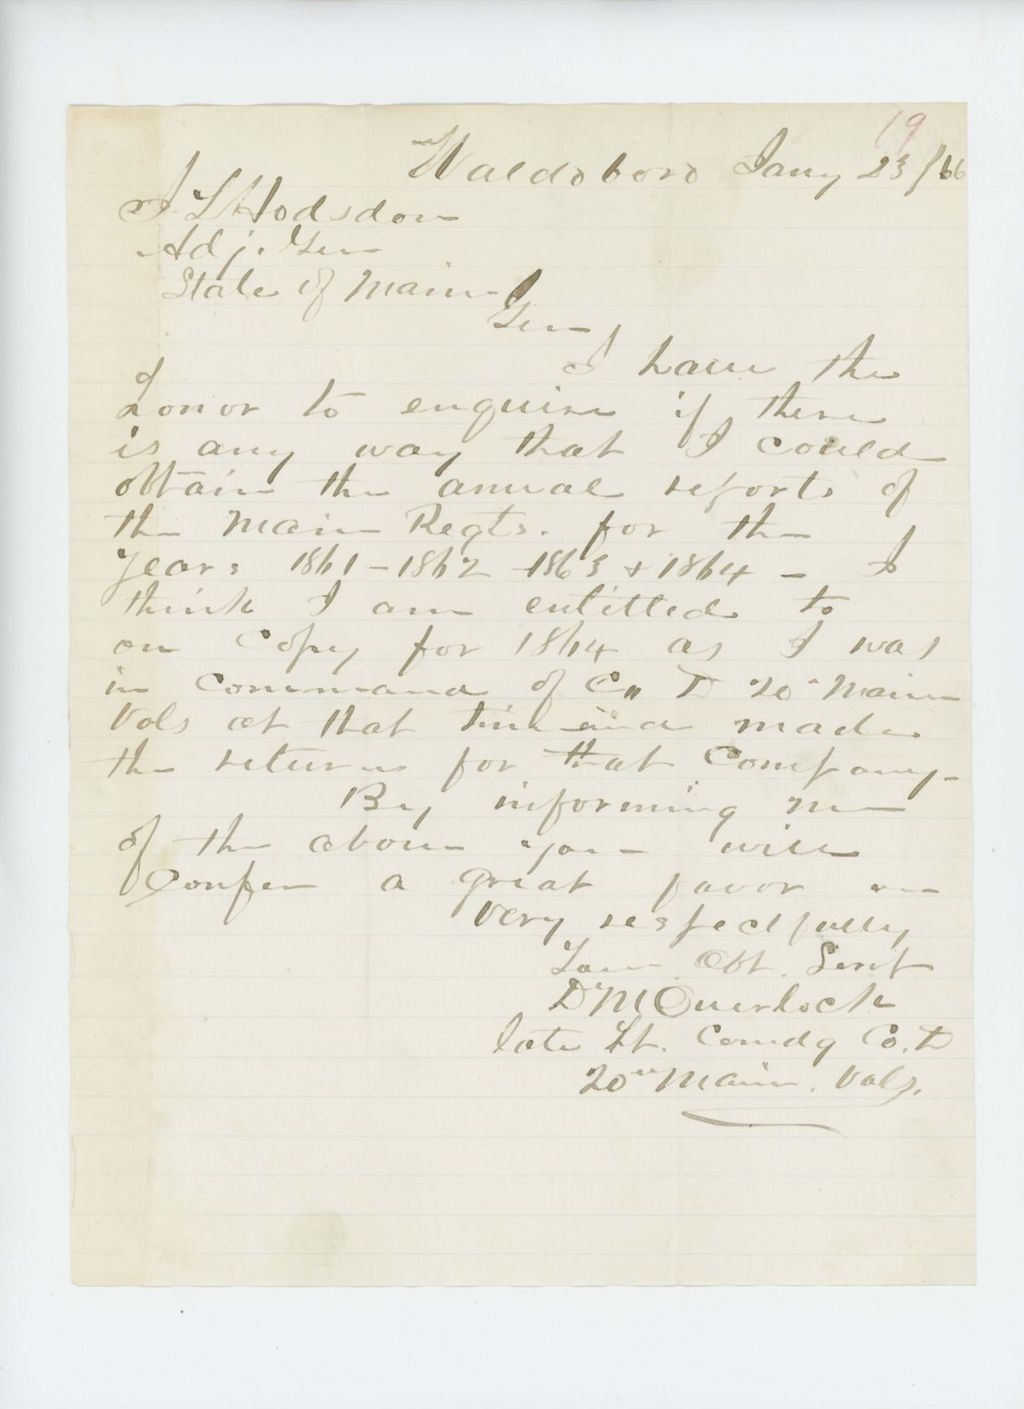 19
Waldoboro Jany 23/66
J L Hodsdon
Adj. Gen
State of Maine
Gen
I have the
honor to enquire if there
is any way that I could
obtain the annual reports of
the Maine Regts. for the
Years 1861 - 1862 - 1863 + 1864 - I
think I am entitled to
on Copy for 1864 as I was
in Command of Co D 20th Maine
Vols at that time and made
the returns for that Company -
By informing me
of the above you will
Confer a great favor on
Very respectfully
Your Obt. Servt
D M Overlock
late Lt. Comdg Co. D
20th Maine. Vols.